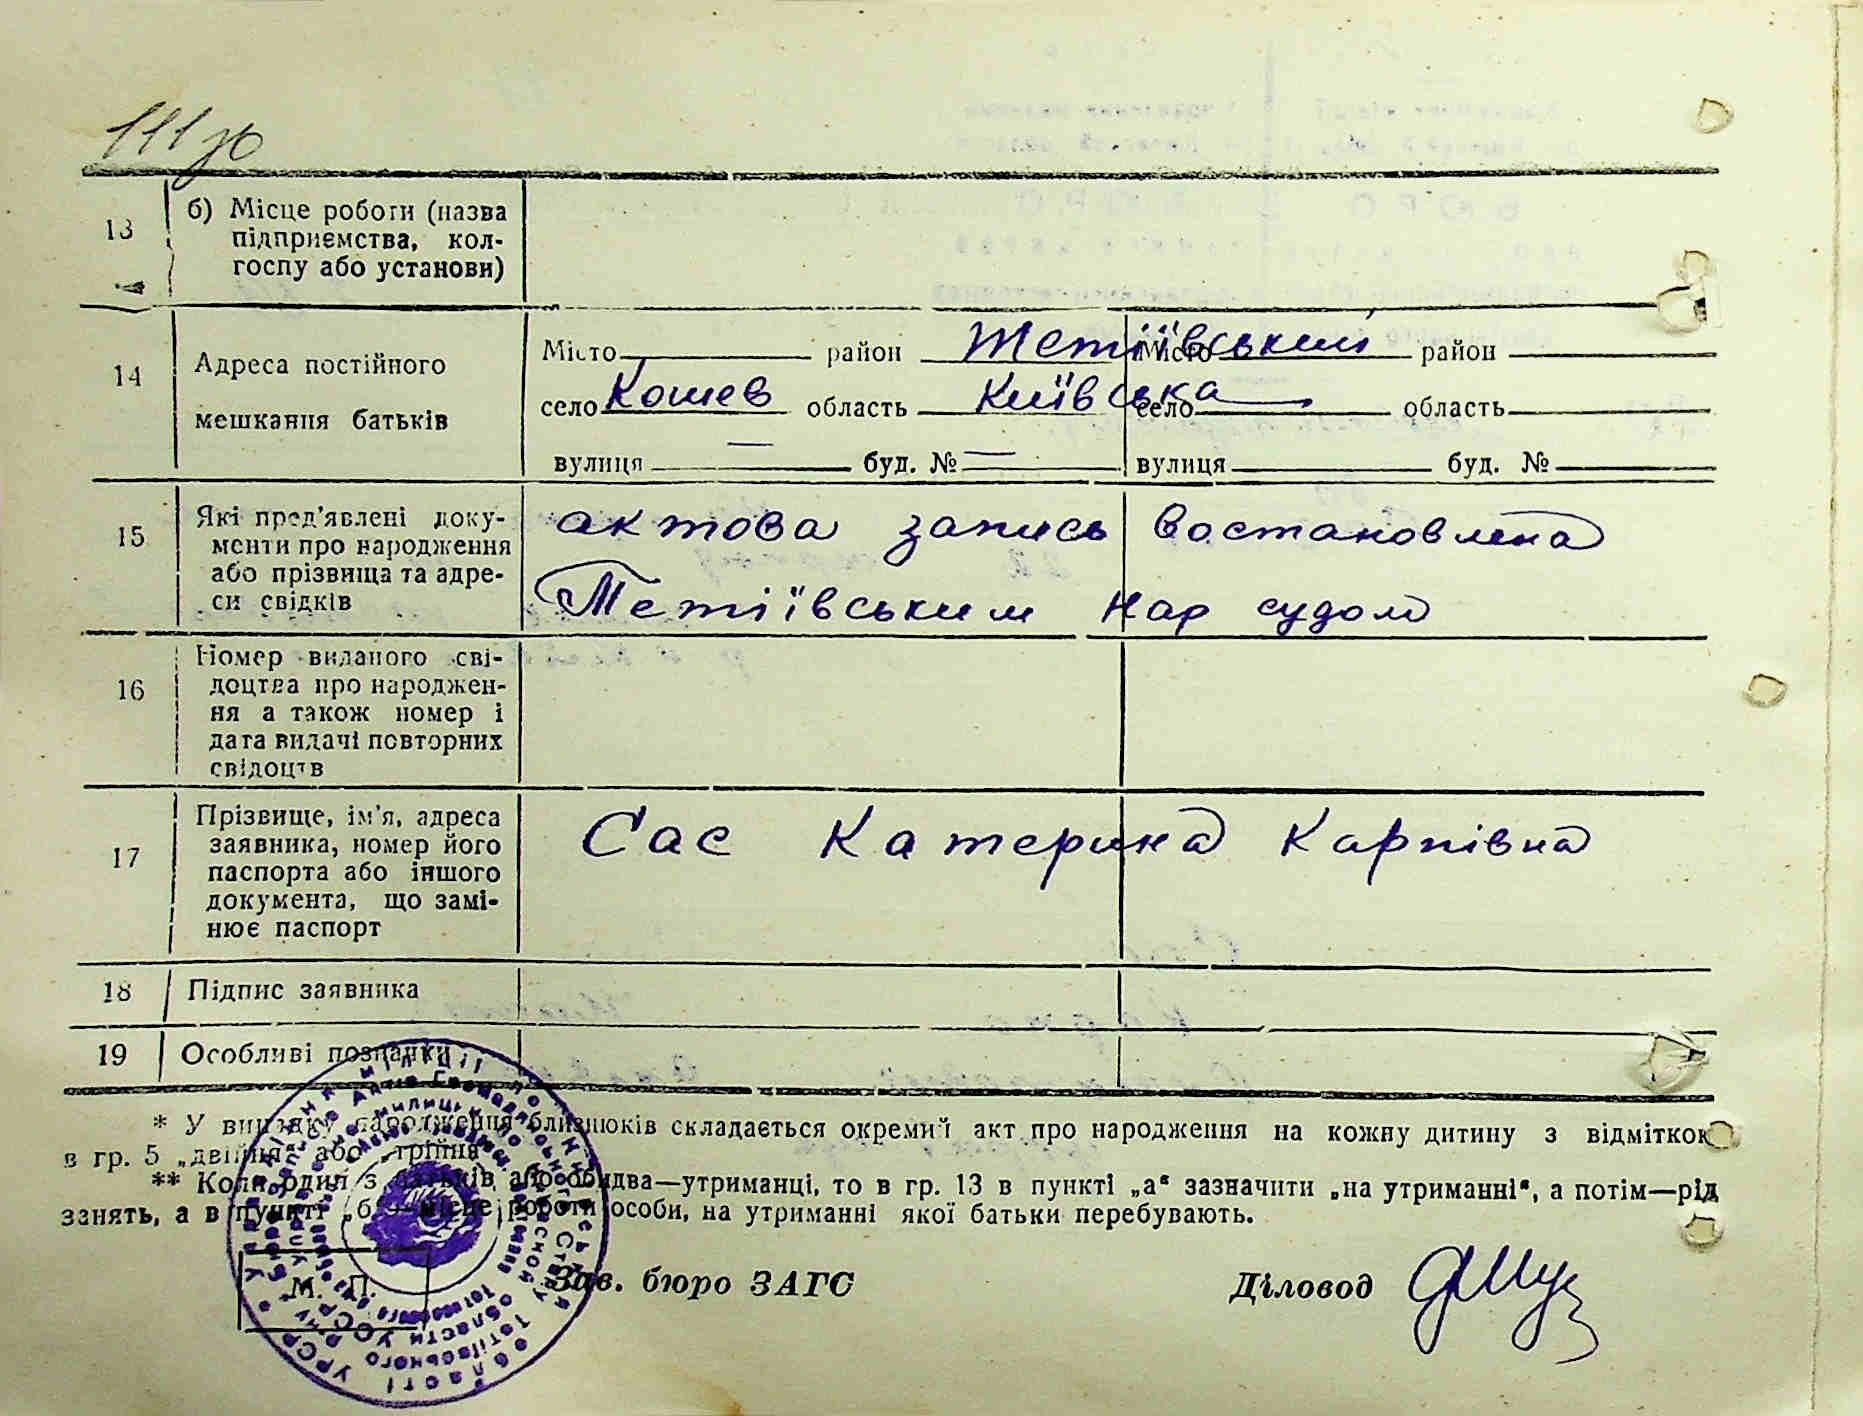 13
б) Місце роботи (назва
підприємства, кол-
госпу або установи)
14
Адреса постійного
мешкання батьків
Місто район Тетіївський Місто район
село Кошев область Київська село область
вулиця — буд. № — вулиця буд. №
15
Які пред'явлені доку-
менти про народження
або прізвища та адре-
си свідків
актова запись востановлена
Тетіївським нар судом
16
Номер виданого сві-
доцтва про народжен-
ня а також номер і
дата видачі повторних
свідоцтв
17
Прізвище, ім'я, адреса
заявника, номер його
паспорта або іншого
документа, що замі-
нює паспорт
Сас Катерина Карпівна
18 Підпис заявника
19 Особливі позначки
* У випадку народження близнюків складається окремий акт про народження на кожну дитину з відміткою
в гр. 5 „двійня" або „трійня"
** Коли один з батьків або обидва—утриманці, то в гр. 13 в пункті „а" зазначити „на утриманні", а потім—рід
занять, а в пункті „б"—місце роботи особи, на утриманні якої батьки перебувають.
М. П.
Зав. бюро ЗАГС
Діловод